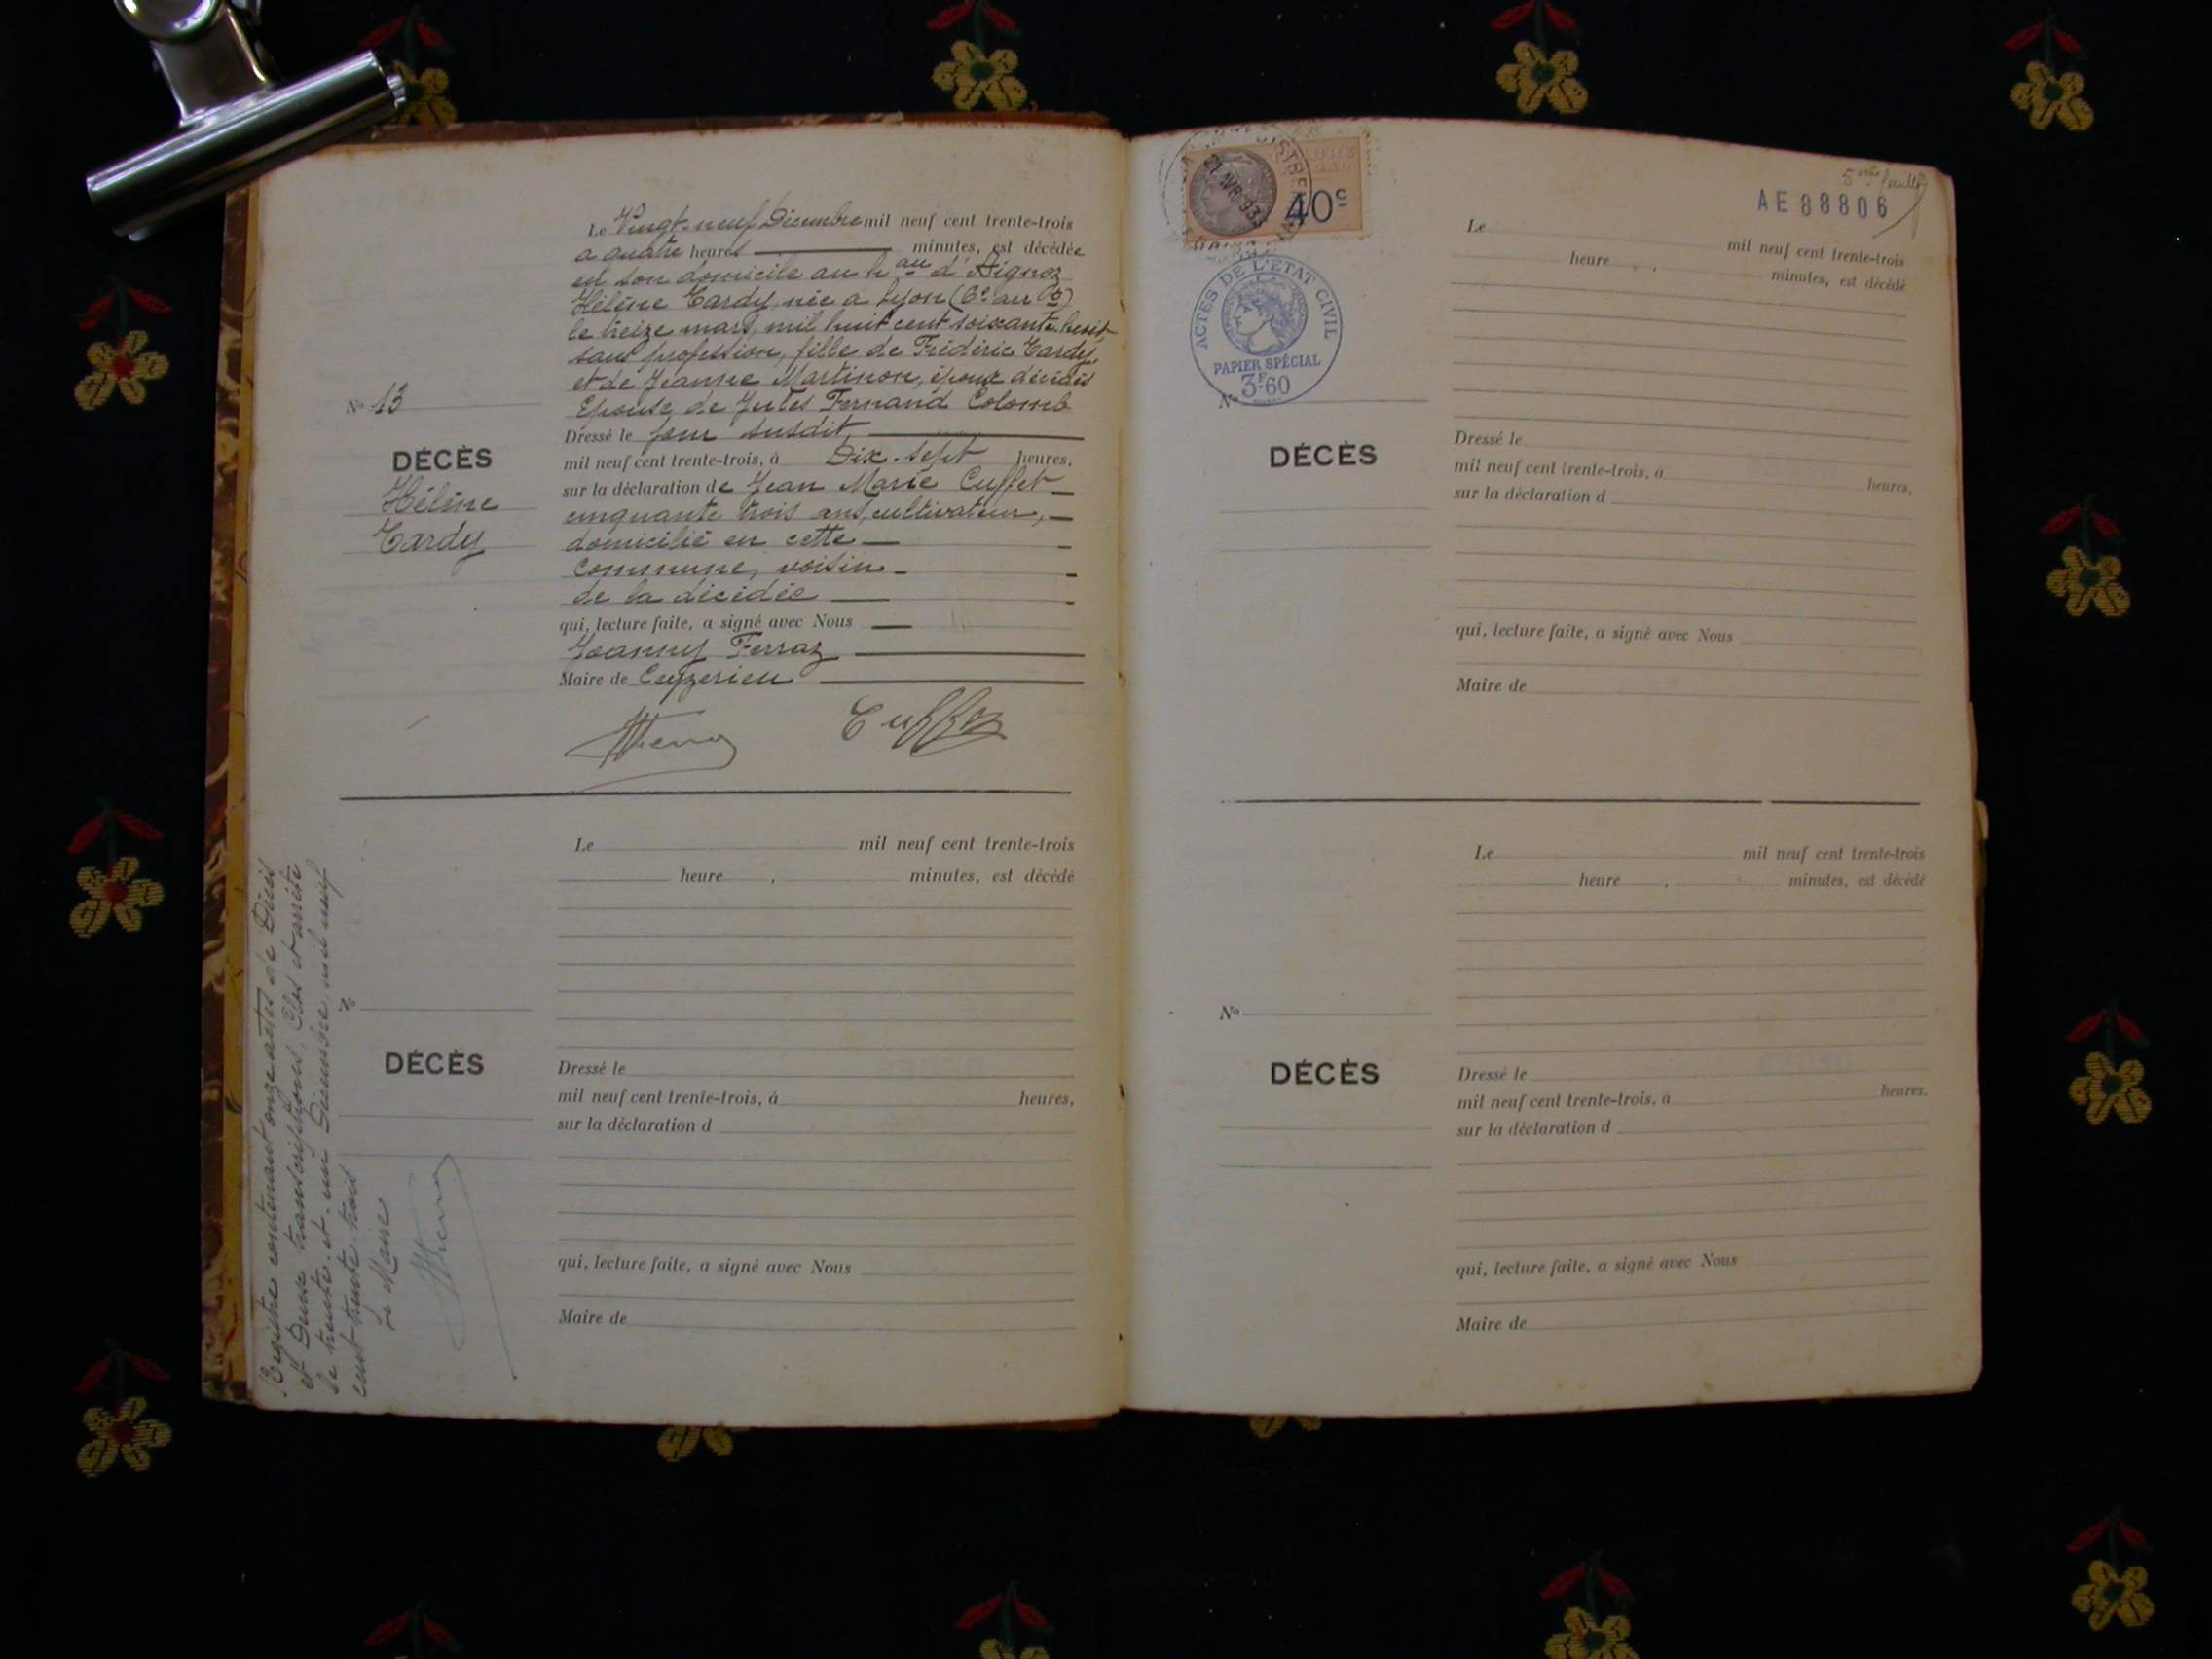 Le Vingt-neuf Décembre mil neuf cent trente-trois
a quatre heures minutes, est décédée
en son domicile au h au d'Aignoz
Hélène Tardy, née a Lyon (6e arr t)
le treize mars, mil huit cent soixante huit,
sans profession, fille de Frédéric Tardy,
et de Jeanne Martinon, époux décédés
Epouse de Jules Fernand Colomb
No 13
DÉCÈS
Hélène
Tardy
Dressé le jour susdit,
mil neuf cent trente-trois, à Dix-sept heures,
sur la déclaration de Jean Marie Cuffet
cinquante trois ans, cultivateur,
domicilié en cette
commune, voisin
de la décédée
qui, lecture faite, a signé avec Nous
Joanny Ferraz
Maire de Ceyzerieu
Le mil neuf cent trente-trois
heure , minutes, est décédé
No
DÉCÈS
Dressé le
mil neuf cent trente-trois, à heures,
sur la déclaration d
qui, lecture faite, a signé avec Nous
Maire de
Registre contenant onze actes de Décès
et Deux transcriptions, Clos et arrêté
le trente et un Décembre mil neuf
cent trente trois
Le Maire
40c
AVR 1933
ACTES DE L'ÉTAT CIVIL
PAPIER SPÉCIAL
3F60
5 feuillet
AE 88806
Le mil neuf cent trente-trois
heure , minutes, est décédé
No
DÉCÈS
Dressé le
mil neuf cent trente-trois, à heures,
sur la déclaration d
qui, lecture faite, a signé avec Nous
Maire de
Le mil neuf cent trente-trois
heure , minutes, est décédé
No
DÉCÈS
Dressé le
mil neuf cent trente-trois, à heures,
sur la déclaration d
qui, lecture faite, a signé avec Nous
Maire de